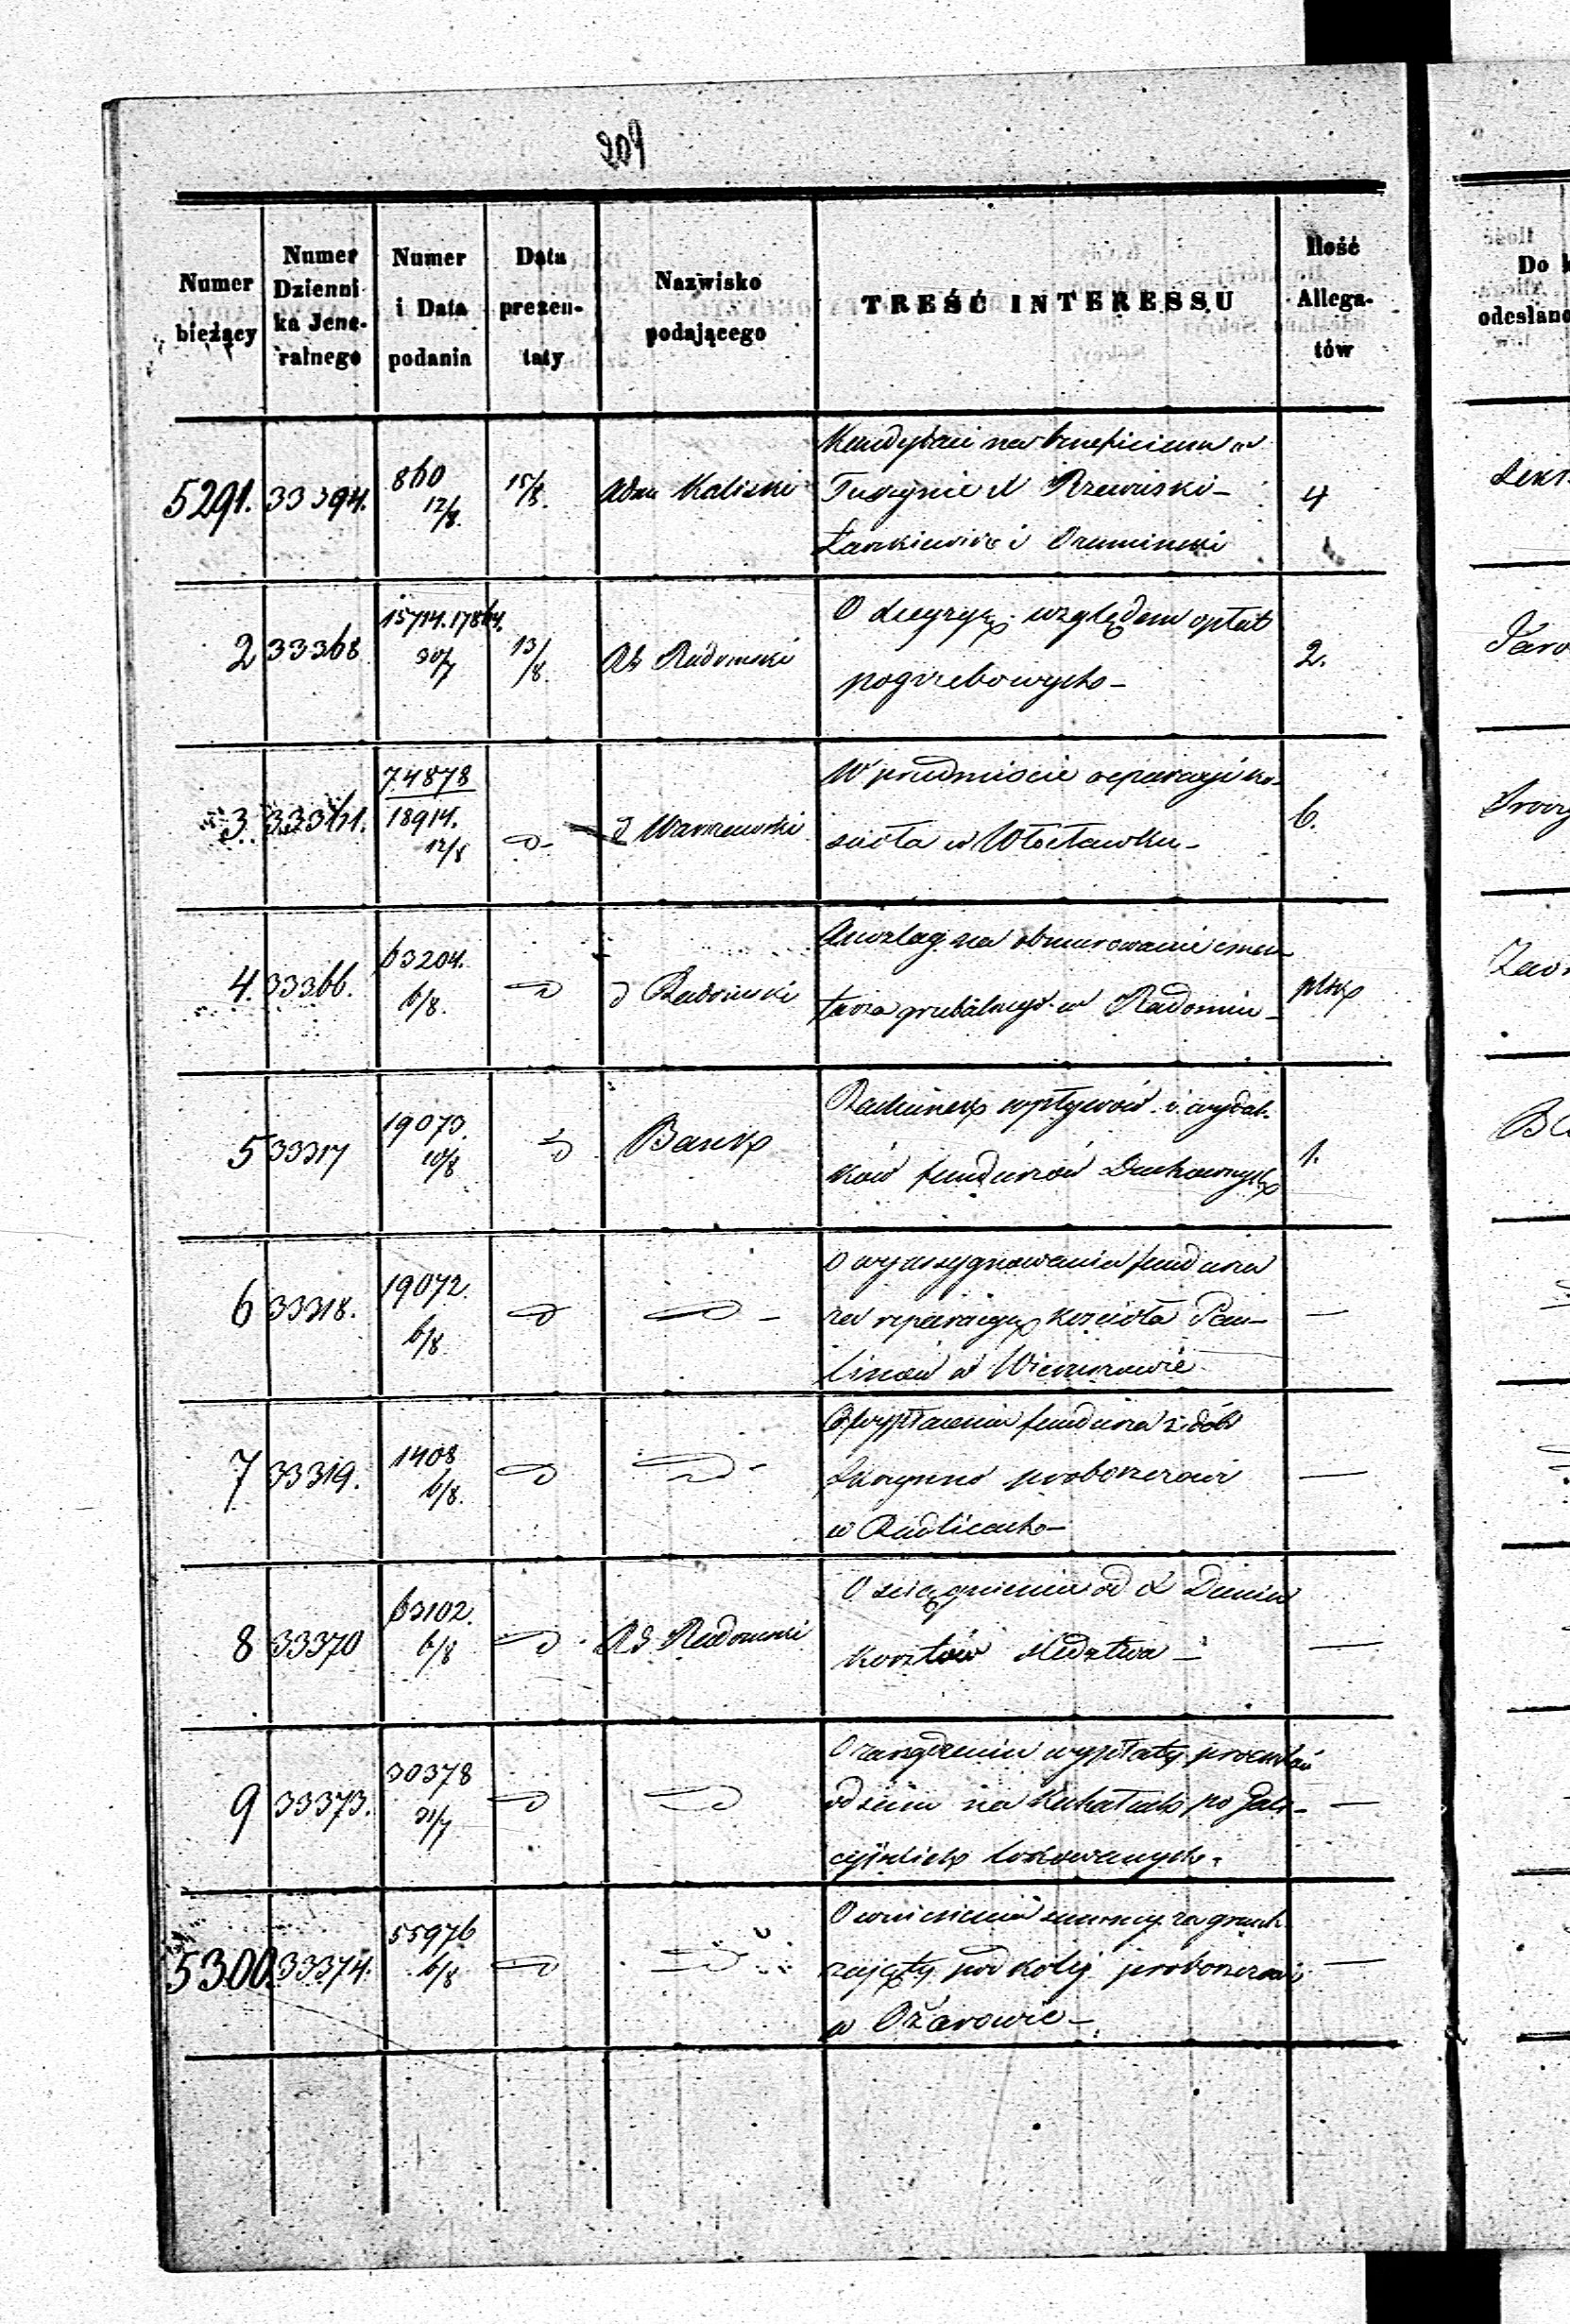 209
Numer bieżący
Numer Dziennika Jeneralnego
Numer i Data podania
Data prezentaty
Nazwisko podającego
TREŚĆ INTERESSU
Ilość Allegatów
Do
odesłano
5291. 33394. 860 12/8. 15/8. Adm Kaliski 4
Kandydaci na beneficium w
Tuszynie X Rzewuski -
i
2 33368 15714. 17864. 30/7 13/8. Rd Radomski 2.
O decyzyę względem opłat
pogrzebowych -
3 33361. 74878 18914. 12/8 d Warszawski 6.
W przedmiocie reperacyi ko-
ścioła w Włocławku -
4. 33366. 63204. 6/8. d Radomski plikę
Anszlag na obmurowanie cmen-
tarza grzebalnego w Radomiu -
5 33317 19073. 10/8 Bank 1.
Rachunek wpływów i wydat-
ków funduszów Duchownych
6 33318. 19072. 6/8 —
O wyassygnowanie funduszu
na reperacyę kościoła Pau-
linów w Wieruszowie
7 33319. 1408 6/8. —
O wypłacenie funduszu z dóbr
Skrzynno proboszczowi
w Rudlicach -
8 33370 63102. 6/8 Rd Radomski —
O ściągnienie od X Dunin
kosztów śledztwa -
9 33373. 30378 31/7 —
O zarządzenie wypłaty procentów
od sum na po Gali-
cyjskich lokowanych -
5300. 33374. 55976 6/8 —
O wniesienie summy za grunt
zajęty pod kolej proboszczowi
w Ożarowie -